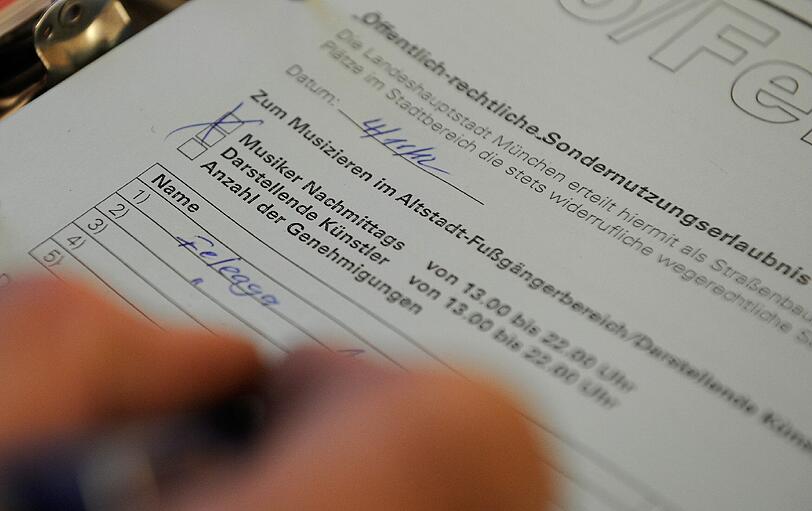 Öffentlich-rechtliche Sondernutzungserlaubnis
Die Landeshauptstadt München erteilt hiermit als Straßenbau
Plätze im Stadtbereich die stets widerrufliche wegerechtliche
Datum:
Zum Musizieren im Altstadt-Fußgängerbereich/Darstellende
Musiker Nachmittags von 13.00 bis 22.00 Uhr
Darstellende Künstler von 13.00 bis 22.00 Uhr
Anzahl der Genehmigungen
Name
1) Feleaga
2) "
3)
4)
5)